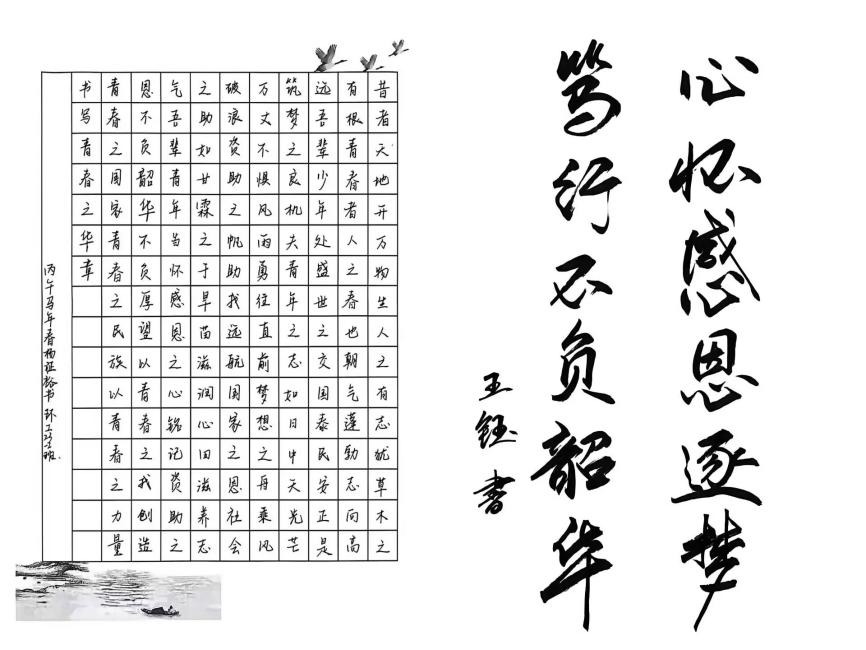 昔者天地开万物生人之有志犹草木之
有根青春者人之春也朝气蓬勃志向高
远吾辈少年处盛世之交国泰民安正是
筑梦之良机夫青年之志如日中天光芒
万丈不惧风雨勇往直前梦想之舟乘风
破浪资助之帆助我远航国家之恩社会
之助如甘霖之于旱苗滋润心田滋养志
气吾辈青年当怀感恩之心铭记资助之
恩不负韶华不负厚望以青春之我创造
青春之国家青春之民族以青春之力量
书写青春之华章
丙午马年春杨书 环工班
心怀感恩逐梦
笃行不负韶华
王钰书